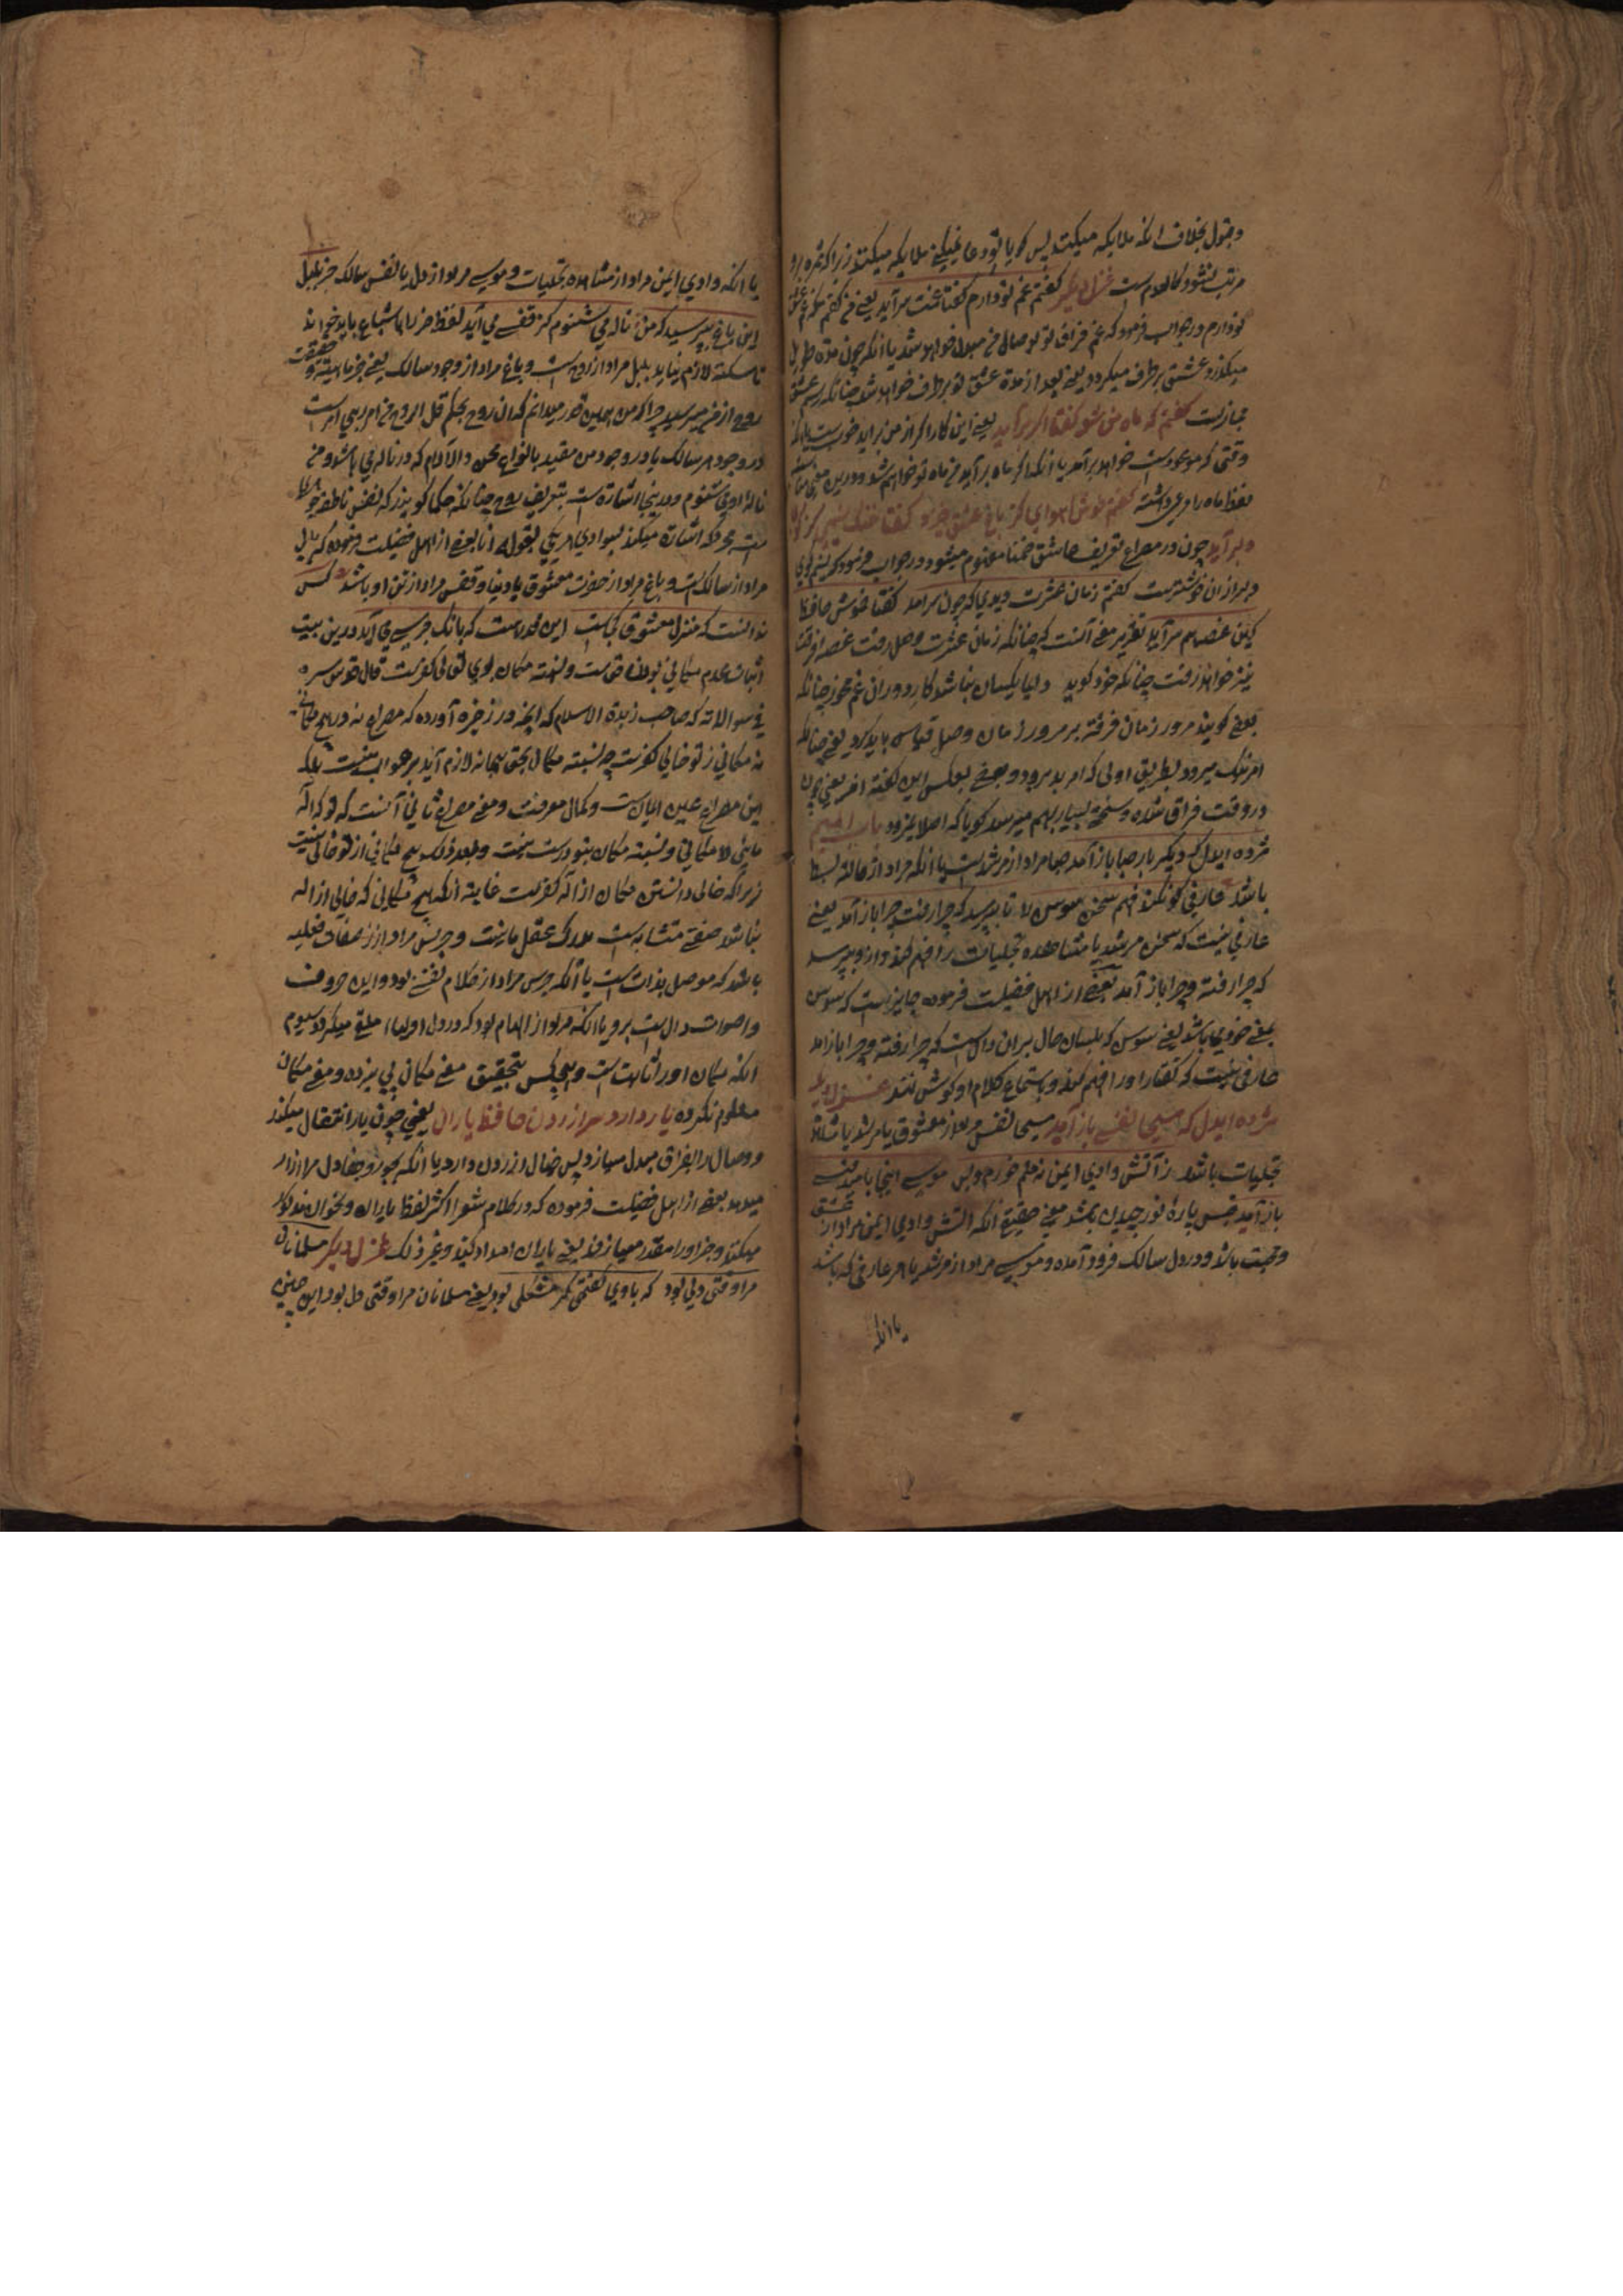 و قبول بخلاف انکه ملایکه میکنند پس کویا تو دعا نمیکنی ملایکه میکنند زیرا که ثمره برو
مرتب نشود کالعدم است غزل دیکر کفتم غم تو دارم کفتا غمت سرآید یعنی من کفتم که من غم عشق
تو دارم در جواب فرمود که غم فراق تو بوصال من مبدل خواهد شد یا انکه چون مدة طویل
میکذرد عشق برطرف میکردد یعنی بعد از مدة عشق تو برطرف خواهد شد چنانکه رسم عشق
مجازیست کفتم که ماه من شو کفتا اکر برآید یعنی این کار اکر از من براید خوبست یا انکه
وقتی که موعودست خواهد برآمد یا انکه اکر ماه برآید من ماه تو خواهم شد و درین معنی
لفظ ماه را دعوی داشته کفتم خوش هوای کز باغ عشق خیزد کفتا خنک نسیمی کز کوی
دلبر آید چون در مصراع تعریف عاشق ضمنا مفهوم میشود در جواب فرمود که نسیم کوی
دلبر ازان خوشترست کفتم زمان عشرت دیدی که چون سرامد کفتا خموش حافظ
کین غصه هم سرآید تقریر معنی آنست که چنانکه زمان عشرت و وصل رفت غصه فرقت
نیز خواهد رفت چنانکه خود کوید دایما یکسان نباشد کار دوران غم مخور چنانکه
بعضی کویند مرور زمان فرقت بر مرور زمان وصل قیاس باید کرد یعنی چنانکه
امر نیک میرود بطریق اولی که امر بد برود و بعضی بعکس این کفته اند یعنی چون
در وقت فراق شده و سختی بسیار بهم میرسد کویا که اصلا نمیرود باب المیم
مژده ایدل که دیکر باد صبا باز آمد صبا مراد از مرشدست یا انکه مراد از حالة بسط
باشد عارفی کو که کند فهم سخن سوسن را تا بپرسد که چرا رفت چرا باز آمد یعنی
عارفی نیست که سخن مرشد یا مشاهده تجلیات را فهم کند و ازو بپرسد
که چرا رفته و چرا باز آمد بعضی از اهل فضیلت فرموده جایزست که سوسن
بمعنی خود باشد یعنی سوسن که بلسان حال بران دالست که چرا رفته و چرا باز آمد
عارفی نیست که کفتار او را فهم کند و باستماع کلام او کوش نهد غزل دیکر
مژده ایدل که مسیحا نفسی باز آمد مسیحا نفس مراد از معشوق یا مرشد یا مشاهده
تجلیات باشد ز آتش وادی ایمن نه منم خرم و بس موسی اینجا بامید قبسی
باز آمد قبس پارهٔ نور چیدن باشد معنی حقیقی انکه آتش وادی ایمن مراد از عشق
و محبت باشد و در دل سالک فرود آمده و موسی مراد از مرشد یا هر عارفی که باشد
یا انکه
یا انکه وادی ایمن مراد از مشاهده تجلیات و موسی مراد از دل یا نفس سالک خبر بلبل
این باغ بپرسید که من ناله می شنوم کز قفسی می آید لفظ خبر را باشباع باید خواند
تا سکته لازم نیاید بلبل مراد از روح است و باغ مراد از وجود سالک یعنی خبر ماهیت و حقیقت
روح از من مپرسید چرا که من همین قدر میدانم که ان روح بحکم قل الروح من امر ربی امر است
در وجود هر سالک یا در وجود من مقید بانواع محن و الام که در ناله می باشد و من
نالهٔ او می شنوم و درینجا اشارة است بتعریف روح چنانکه حکما کویند که نفس ناطقه جوهر
است مجرد که اشارة میکند بسوی هر یکی بقول انا بعضی از اهل فضیلت فرموده که بلبل
مراد از سالک است و باغ مراد از حضرت معشوق یا دنیا و قفس مراد از تن او باشد کس
ندانست که منزل معشوق کجاست این قدر هست که بانک جرسی می آید درین بیت
اثبات عدم مکانی بودن حق است و نسبت مکان بوی تعالی کفرست قال قدوس سره
فی سوالاته که صاحب زبدة الاسلام که انچه در ذخیره آورده که مصراع نه در هیچ مکانی
نه مکانی ز تو خالی کفرست چه نسبت مکان بحق سبحانه لازم آید در جواب نیست بلکه
این مصراع عین ایمان ست و کمال معرفت و معنی مصراع ثانی آنست که تو که اله
مایی لامکانی و نسبت مکان بتو درست نیست و معذلک هیچ مکانی از تو خالی نیست
زیراکه خالی دانستن مکان از اله کفرست غایة انکه هیچ مکانی که خالی از اله
نباشد صفتی متشابه است مدرک عقل ما نیست و جرس مراد از صفات فعلیه
باشد که موصل بذات است یا انکه جرس مراد از کلام نفسی بود و این حروف
و اصوات دال است برو یا انکه مراد از الهام بود که در دل اولیا ملقی میکردد سیوم
انکه مکان او را ثابت است و هیچکس بتحقیق معنی مکان پی نبرده و معنی مکان
معلوم نکرده یار دارد سر آزردن حافظ یاران یعنی چون یار انتقال میکند
و وصال را بفراق مبدل میسازد پس خیال ازردن دارد یا انکه بجور و جفا دل ما را ازار
میدهد بعضی از اهل فضیلت فرموده که در کلام شعرا اکثر لفظ یاران و نحو ان مذکور
میکند و جزا را مقدر میسازند یعنی یاران امداد کنید و غیر ذلک غزل دیکر مسلمانان
مرا وقتی دلی بود که با وی کفتمی کر مشکلی بود یعنی مسلمانان مرا وقتی دل بود این چنین